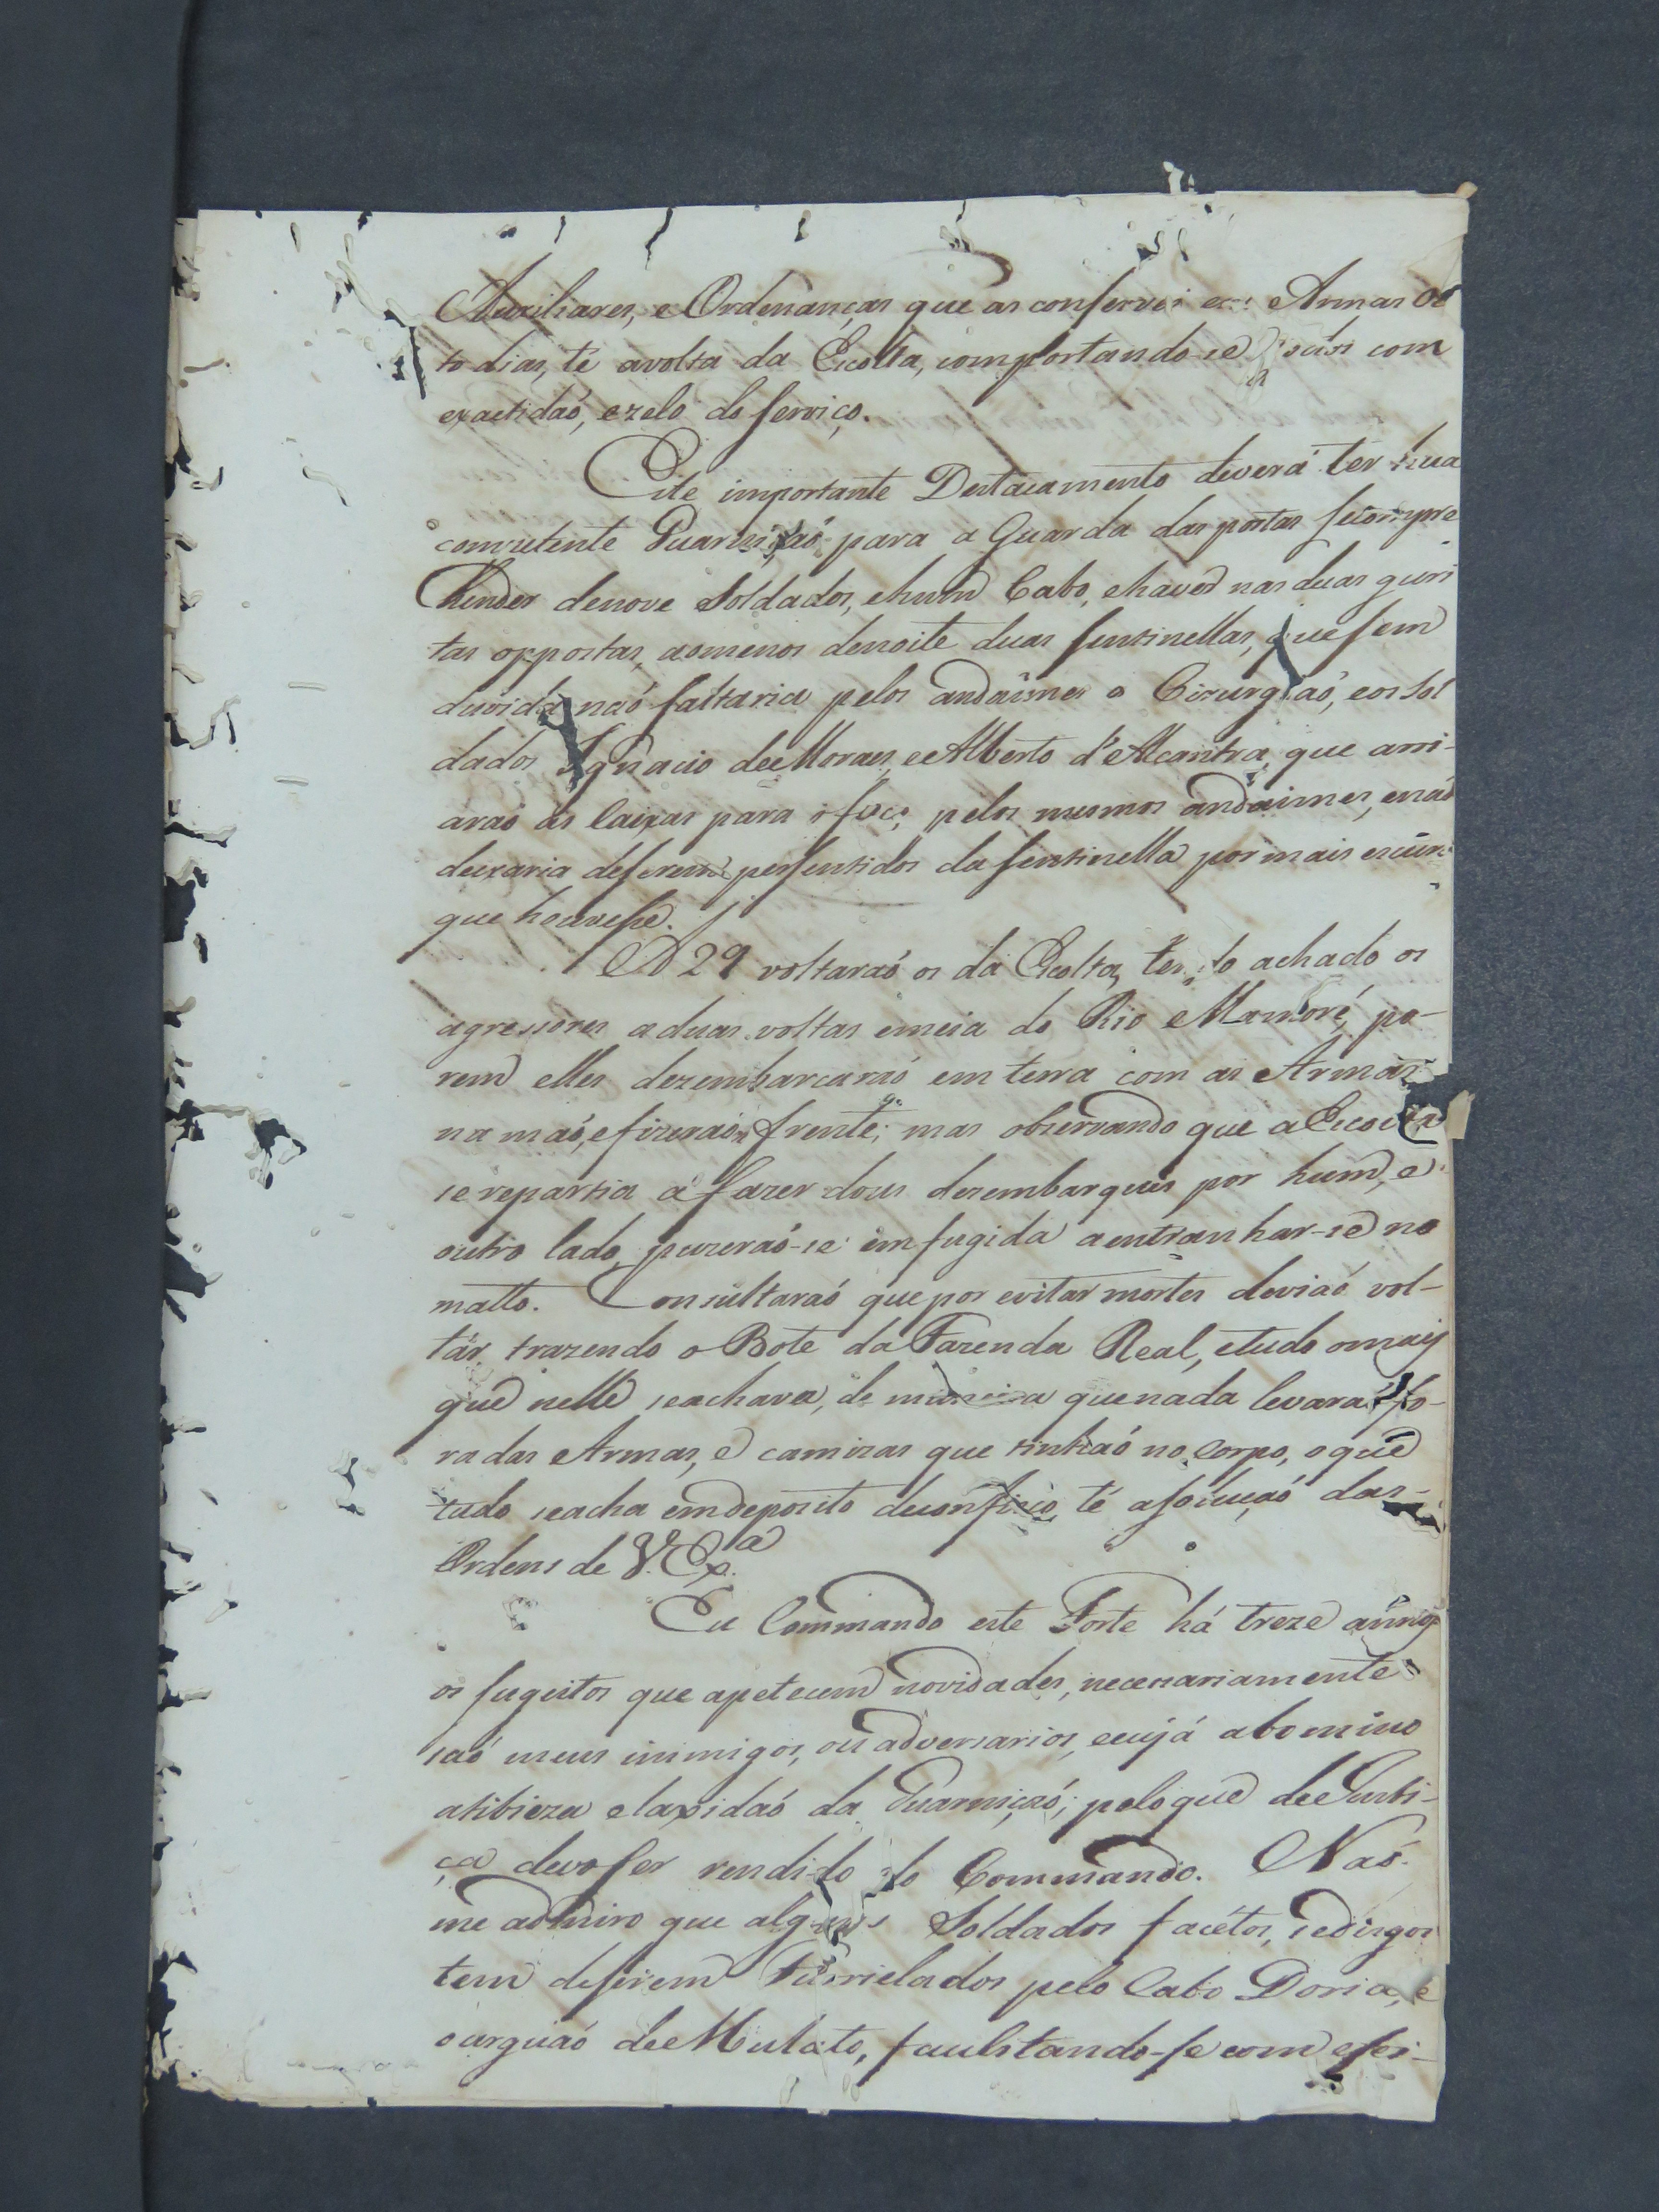 Auxiliares, e Ordenanças que as conservei em Armas Oi
to dias, té avolta da Escolta, comportando-se todos com
exactidaõ, ezelo do serviço.
Este importante Destacamento deverá ter hua
competente Guarniçaõ para a Guarda das portas se compre
hender denove Soldados, ehum Cabo, ehaver nas duas guri
tas oppostas, aomenos denoite duas sentinellas, que sem
duvida naõ faltaria pelos andaimes o Cirurgiaõ, eos Sol
dados Ignacio de Moraes, e Alberto d'Alcantra, que arri-
araõ as caixas para o foço, pelos mesmos andaimes, enaõ
deixaria deserem persentidos da sentinella por mais escuro
que houvesse.
A 29 voltaraõ os da Escolta, tendo achado os
agressores aduas voltas emeia do Rio Mamoré, po-
rem elles dezembarcaraõ em terra com as Armas
na maõ, efizeraõ frente; mas observando que a Escolta
se repartia á fazer dous dezembarques por hum, e
outro lado, puzeraõ-se em fugida a entranhar-se no
matto. Consultaraõ que por evitar mortes deviaõ vol-
tár trazendo o Bote da Fazenda Real, etudo omais
que nelle seachava, de maneira que nada levaraõ fo-
ra das Armas, e camizas que tinhaõ no Corpo, oque
tudo seacha emdeposito té asoluçaõ das
Ordens de V. Ex.ª
Eu Commando este Forte há treze annos
os sugeitos que apetecem novidades, necessariamente
saõ meus inimigos, ou adversarios, eeujá abomino
atibieza elaxidaõ da Guarniçaõ; peloque de Justi-
ça devo ser rendido do Commando. Naõ
me admiro que alguns Soldados facétos, sedisgos
tem deserem Furrielados pelo Cabo Doria, e
oarguaõ de Mulato, facilitando-se com efei-